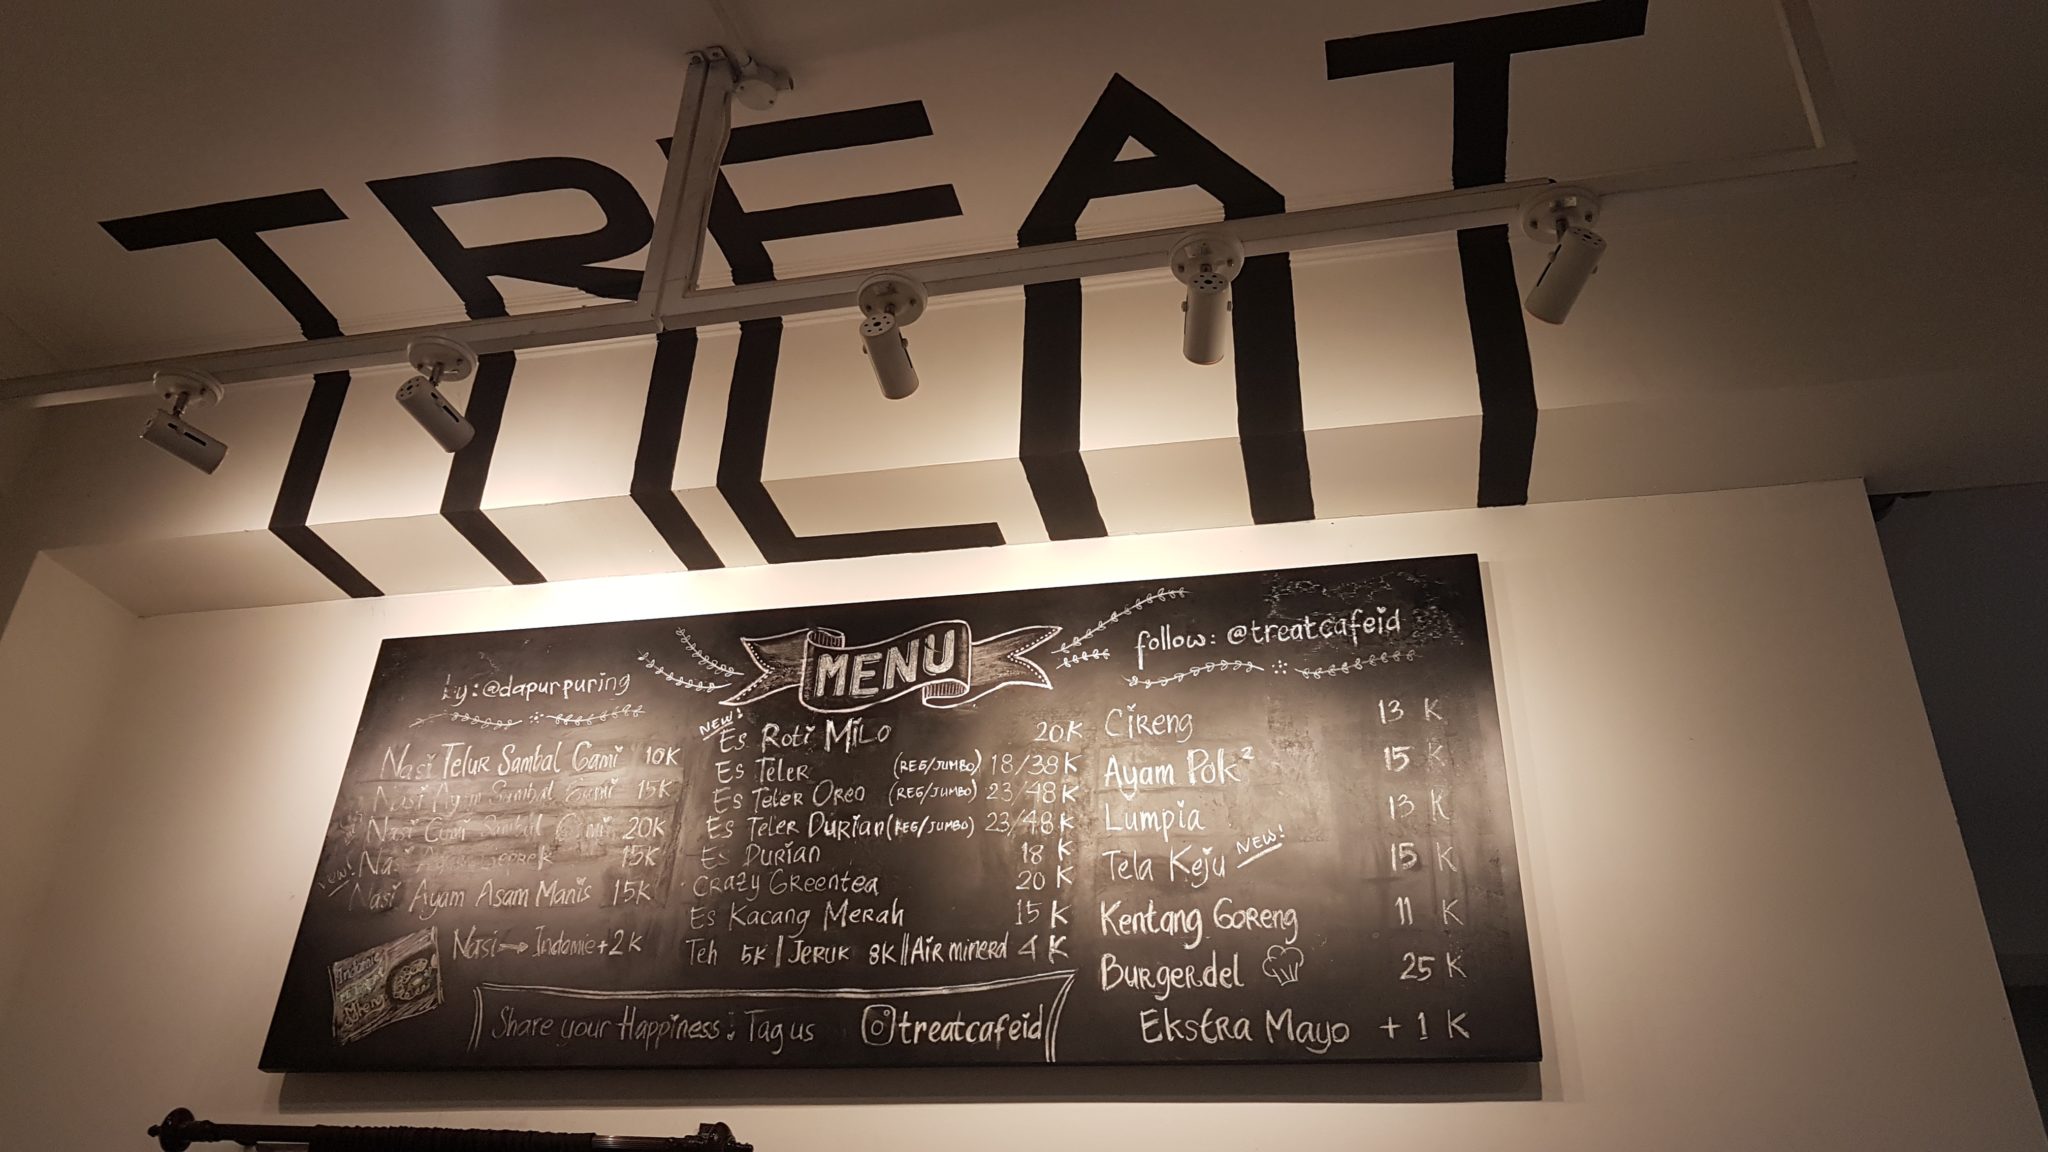 TREAT
MENU
by: @dapurpuring
follow: @treatcafeid
Nasi Telur Sambal Gami 10K
Nasi Ayam Sambal Gami 15K
Nasi Cumi Sambal Gami 20K
NEW! Nasi Ayam Geprek 15K
Nasi Ayam Asam Manis 15K
Nasi → Indomie + 2K
Indomie
NEW! Es Roti Milo 20K
Es Teler (REG/JUMBO) 18/38K
Es Teler Oreo (REG/JUMBO) 23/48K
Es Teler Durian (REG/JUMBO) 23/48K
Es Durian 18 K
Crazy Greentea 20 K
Es Kacang Merah 15 K
Teh 5K | Jeruk 8K || Air mineral 4 K
Cireng 13 K
Ayam Pok² 15 K
Lumpia 13 K
Tela Keju NEW! 15 K
Kentang Goreng 11 K
Burgerdel 25 K
Ekstra Mayo + 1 K
Share your Happiness: Tag us treatcafeid